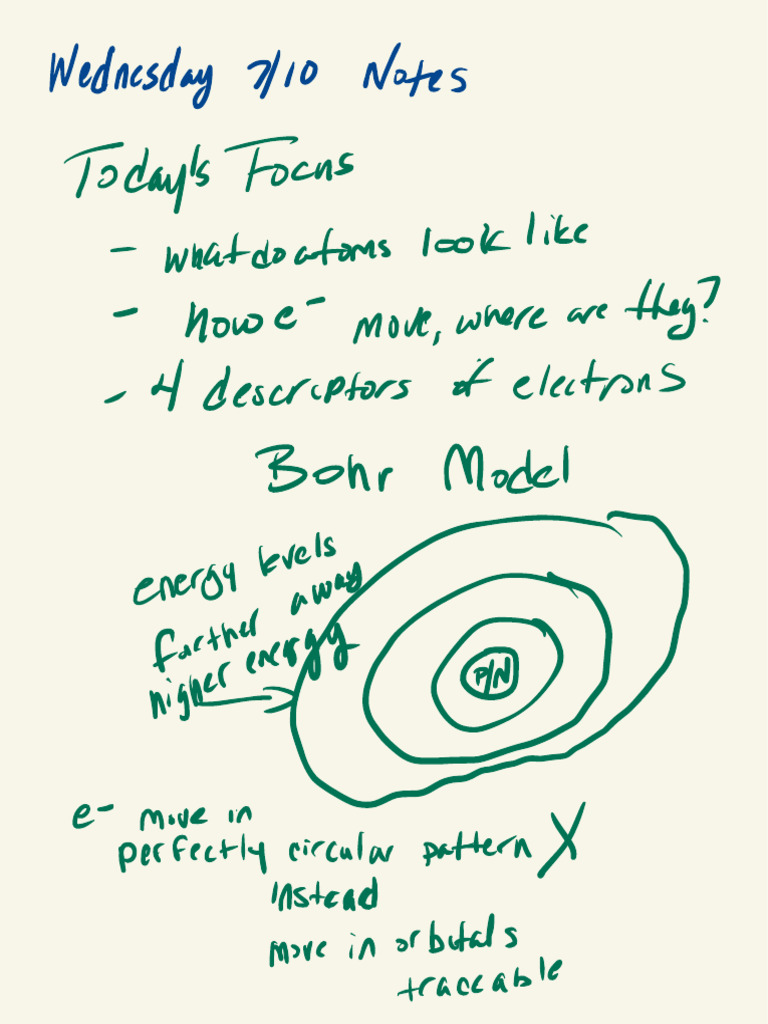 Wednesday 7/10 Notes
Today's Focus
- what do atoms look like
- how e⁻ move, where are they?
- 4 descriptors of electrons
Bohr Model
energy levels
further away
higher energy
P/N
e⁻ move in
perfectly circular pattern X
instead
move in orbitals
traceable